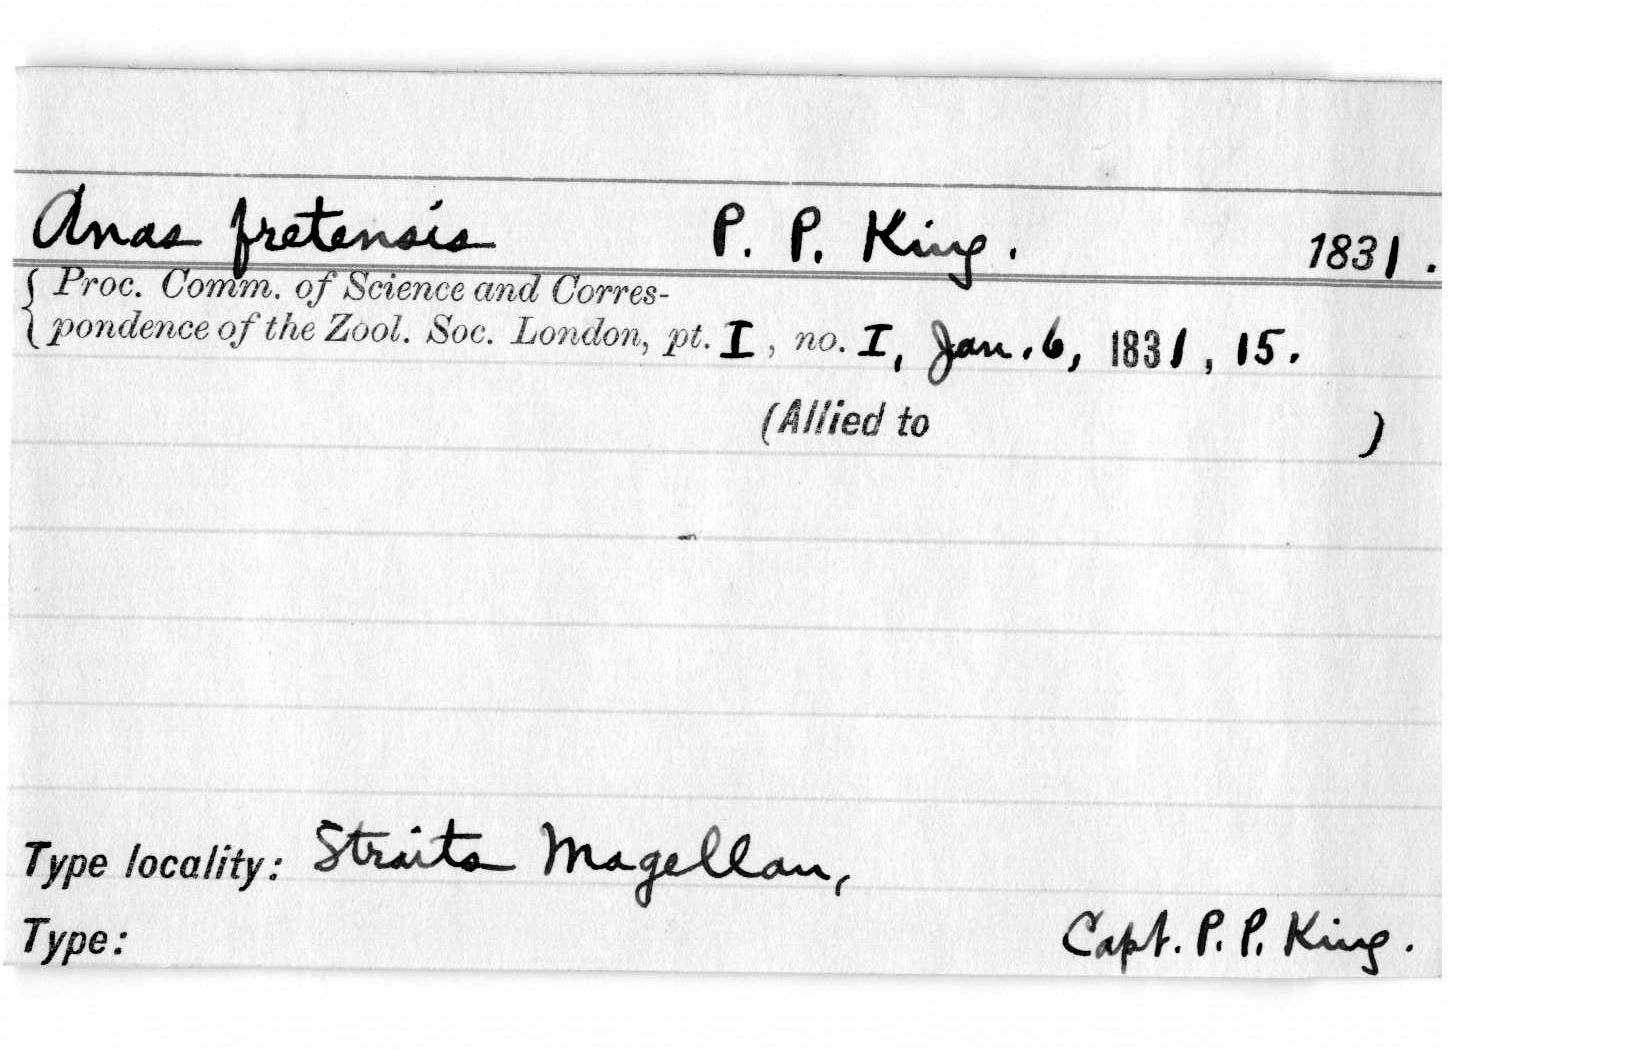 Anas fretensis P. P. King. 1831.
{ Proc. Comm. of Science and Corres-
pondence of the Zool. Soc. London, pt. I, no. I, Jan. 6, 1831, 15.
(Allied to )
Type locality: Straits Magellan,
Type: Capt. P. P. King.